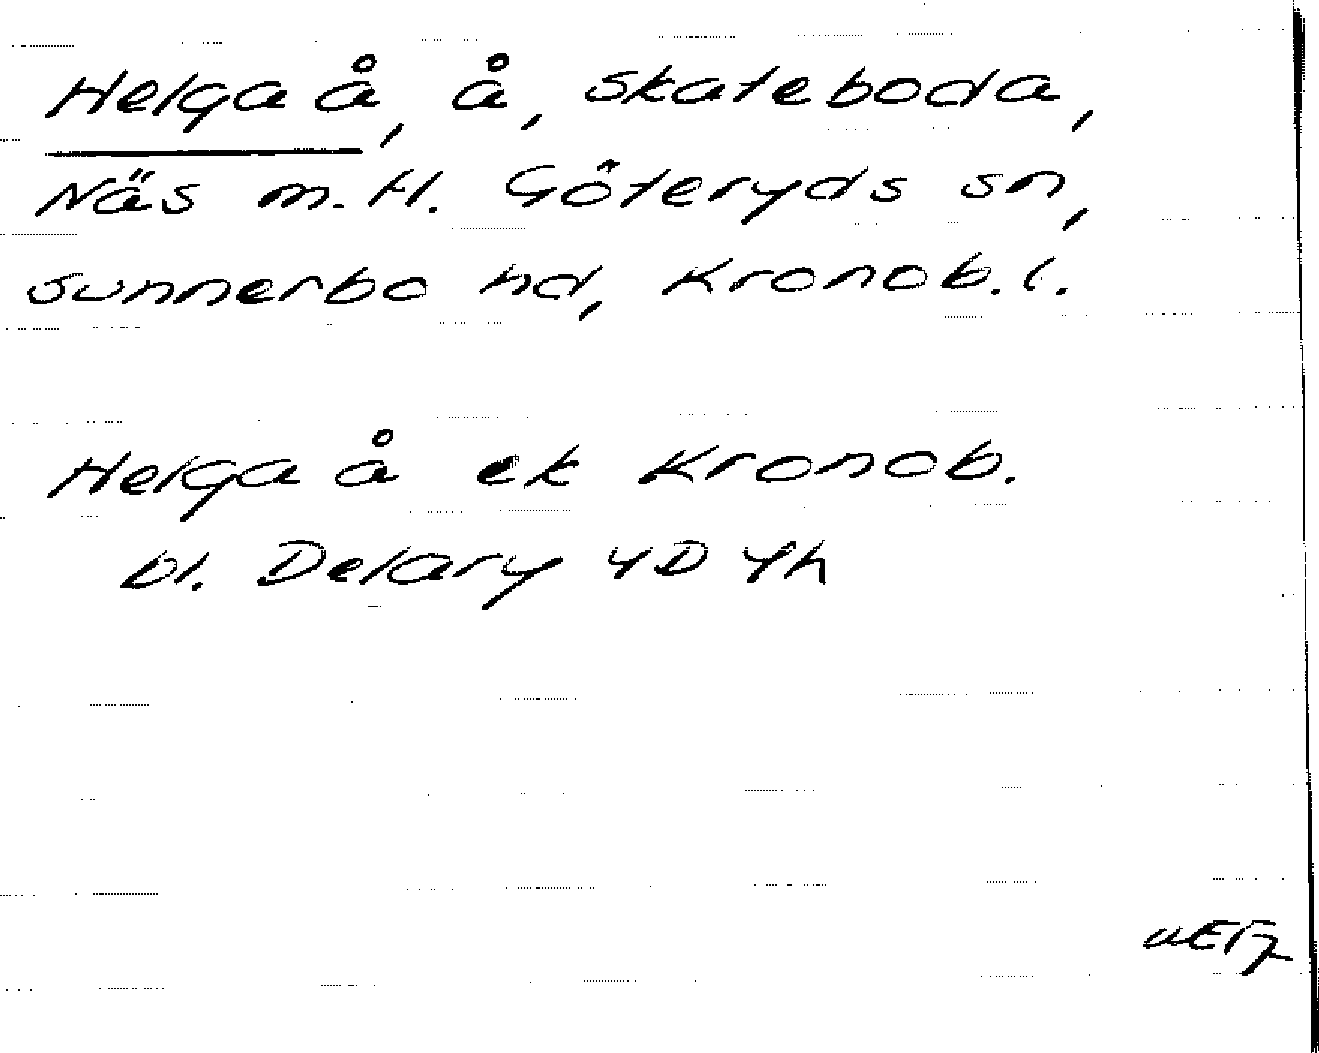 Helga å, å, Skateboda,
Näs m.fl. Göteryds sn,
Sunnerbo hd, Kronob.l.
Helga å ek Kronob.
bl. Delary 4D 4h